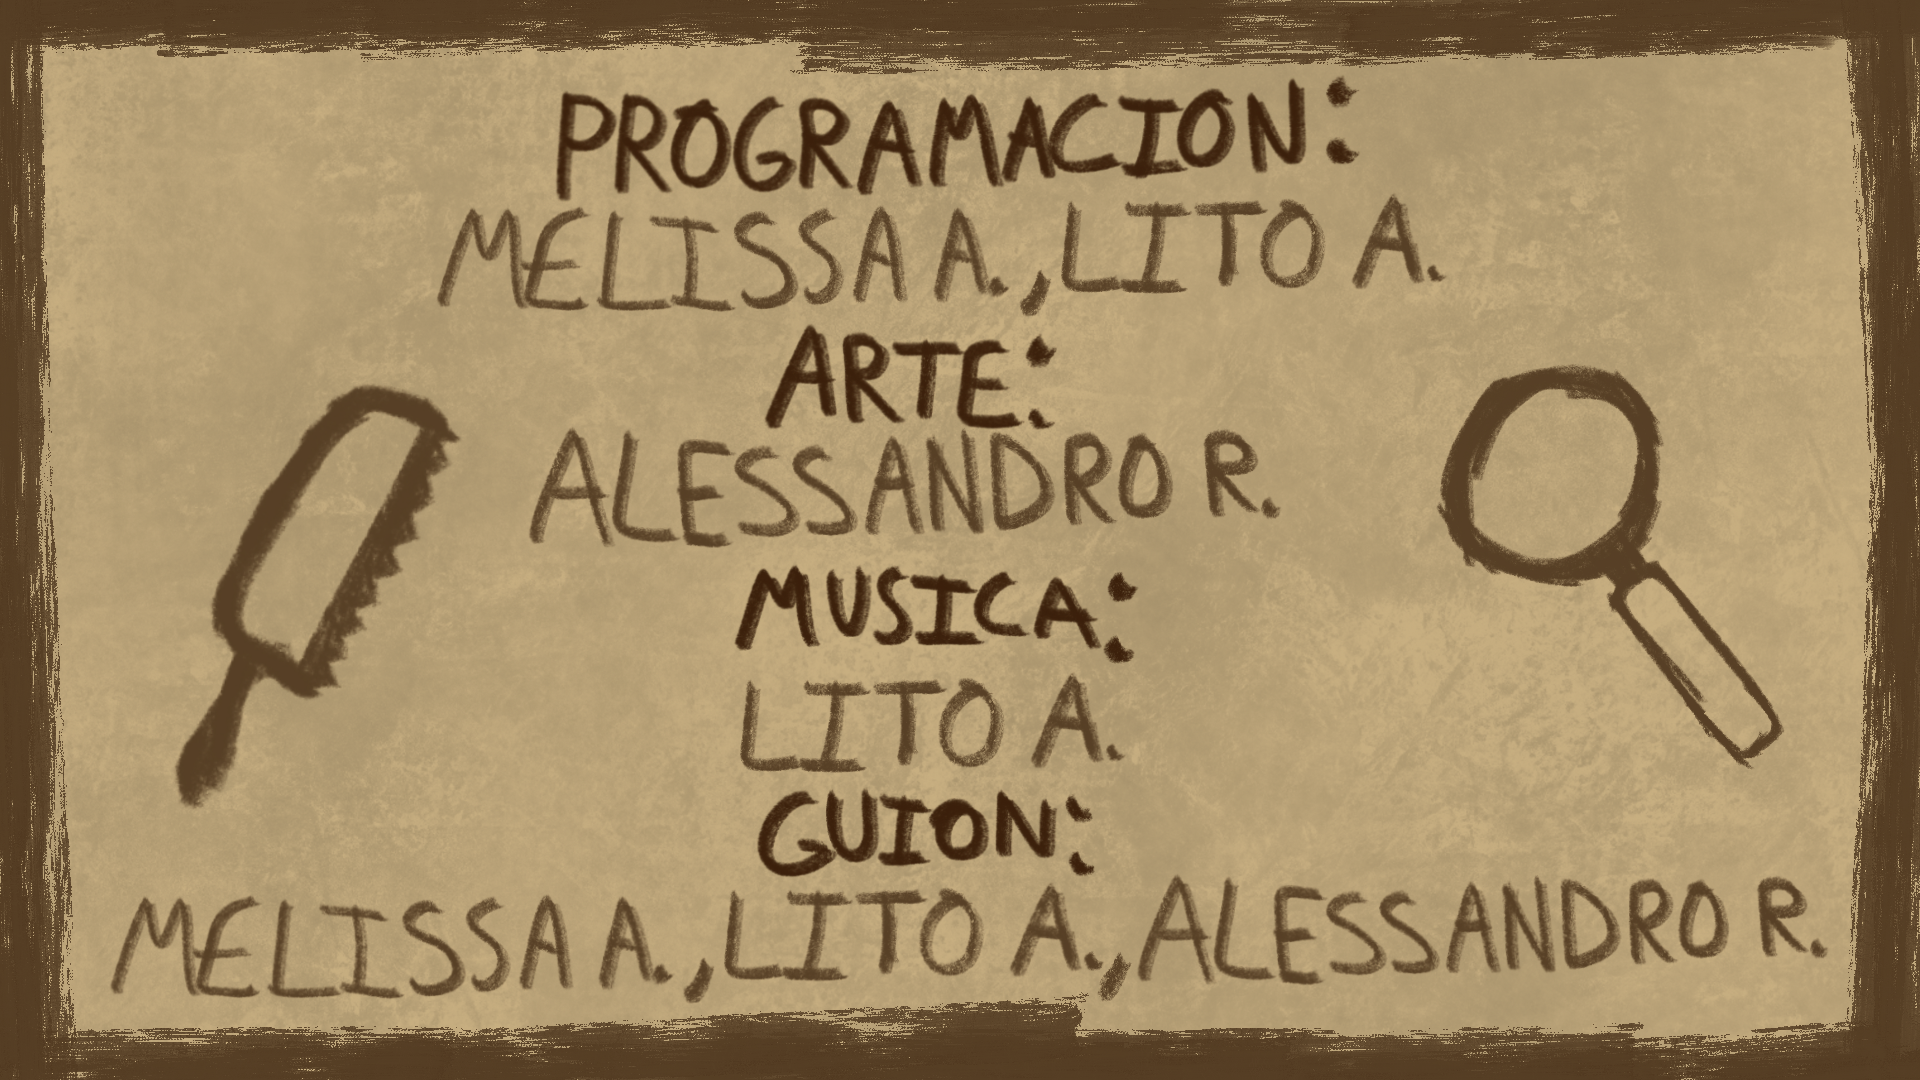 PROGRAMACION:
MELISSA A., LITO A.
ARTE:
ALESSANDRO R.
MUSICA:
LITO A.
GUION:
MELISSA A., LITO A., ALESSANDRO R.